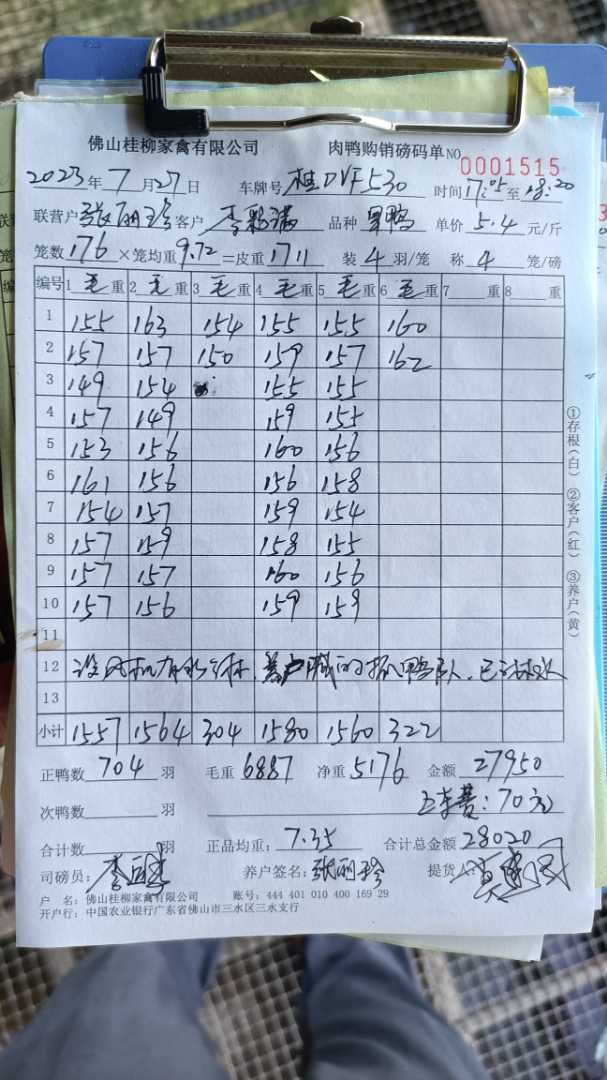 佛山桂柳家禽有限公司 肉鸭购销磅码单 NO 0001515
2023年7月27日 车牌号 桂DVF530 时间17:05至18:20
联营户 张丽珍 客户 李彩满 品种 单价 5.4 元/斤
笼数 176 ×笼均重 9.72 =皮重 1711 装 4 羽/笼 称 4 笼/磅
编号 1 毛 重 2 毛 重 3 毛 重 4 毛 重 5 毛 重 6 毛 重 7 重 8 重
1 155 163 154 155 155 160
2 157 157 150 159 157 162
3 149 154 155 155
4 157 149 159 155
5 153 156 160 156
6 161 156 156 158
7 154 157 159 154
8 157 159 158 155
9 157 157 160 156
10 157 156 159 159
11
12
13
小计 1557 1564 304 1580 1560 322
正鸭数 704 羽 毛重 6887 净重 5176 金额 27950
次鸭数 羽 费:70元
合计数 羽 正品均重: 7.35 合计总金额 28020
司磅员: 养户签名: 张丽珍 提货人:
户 名: 佛山桂柳家禽有限公司 账号: 444 401 010 400 169 29
开户行: 中国农业银行广东省佛山市三水区三水支行
①存根(白) ②客户(红) ③养户(黄)